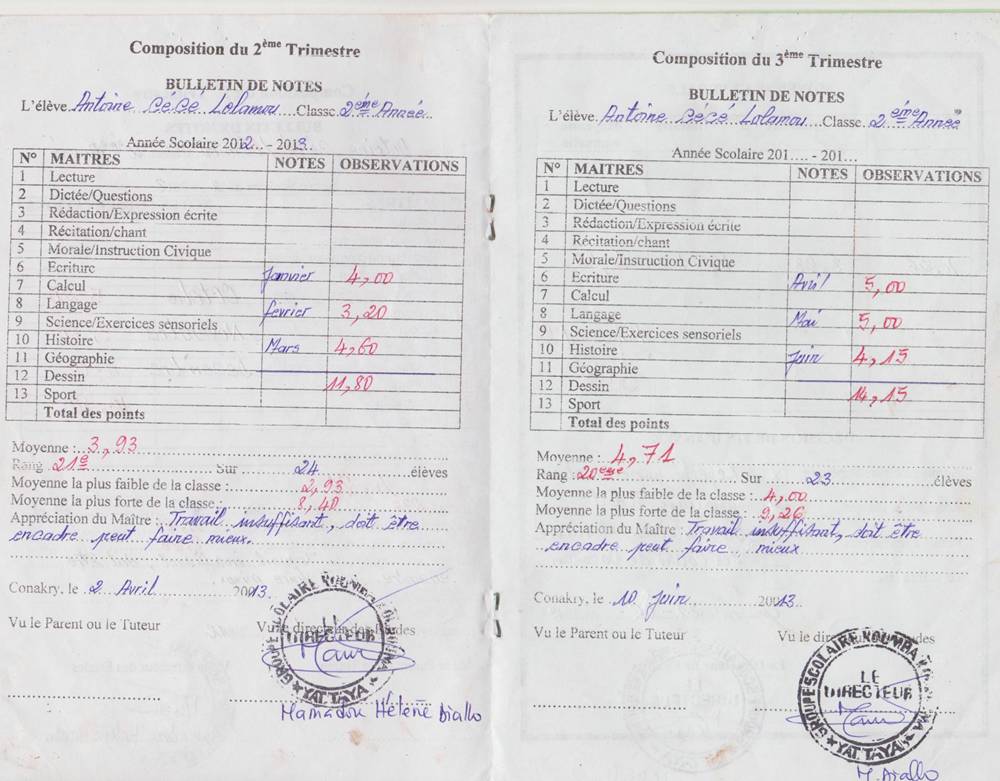 Composition du 2ème Trimestre
BULLETIN DE NOTES
L'élève Antoine Cécé Lolamou Classe 2ème Année
Année Scolaire 2012 - 2013
N° MAITRES NOTES OBSERVATIONS
1 Lecture
2 Dictée/Questions
3 Rédaction/Expression écrite
4 Récitation/chant
5 Morale/Instruction Civique
6 Ecriture Janvier 4,00
7 Calcul
8 Langage février 3,20
9 Science/Exercices sensoriels
10 Histoire Mars 4,60
11 Géographie
12 Dessin 11,80
13 Sport
Total des points
Moyenne : 3,93
Rang 21e Sur 24 élèves
Moyenne la plus faible de la classe : 2,93
Moyenne la plus forte de la classe : 8,40
Appréciation du Maître : Travail insuffisant, doit être
encadre peut faire mieux.
Conakry, le 2 Avril 2013.
Vu le Parent ou le Tuteur Vu le directeur des Etudes
GROUPE SCOLAIRE KOUMBA
LE
DIRECTEUR
YATTAYA
Mamadou Hélène Diallo
Composition du 3ème Trimestre
BULLETIN DE NOTES
L'élève Antoine Cécé Lolamou Classe 2ème Année
Année Scolaire 201.... - 201...
N° MAITRES NOTES OBSERVATIONS
1 Lecture
2 Dictée/Questions
3 Rédaction/Expression écrite
4 Récitation/chant
5 Morale/Instruction Civique
6 Ecriture Avril 5,00
7 Calcul
8 Langage Mai 5,00
9 Science/Exercices sensoriels
10 Histoire Juin 4,15
11 Géographie
12 Dessin 14,15
13 Sport
Total des points
Moyenne : 4,71
Rang : 20ème Sur 23 élèves
Moyenne la plus faible de la classe : 4,00
Moyenne la plus forte de la classe : 9,26
Appréciation du Maître : Travail insuffisant, doit être
encadre peut faire mieux
Conakry, le 10 Juin 20013.
Vu le Parent ou le Tuteur Vu le directeur des Etudes
GROUPE SCOLAIRE KOUMBA
LE
DIRECTEUR
YATTAYA
M. Diallo